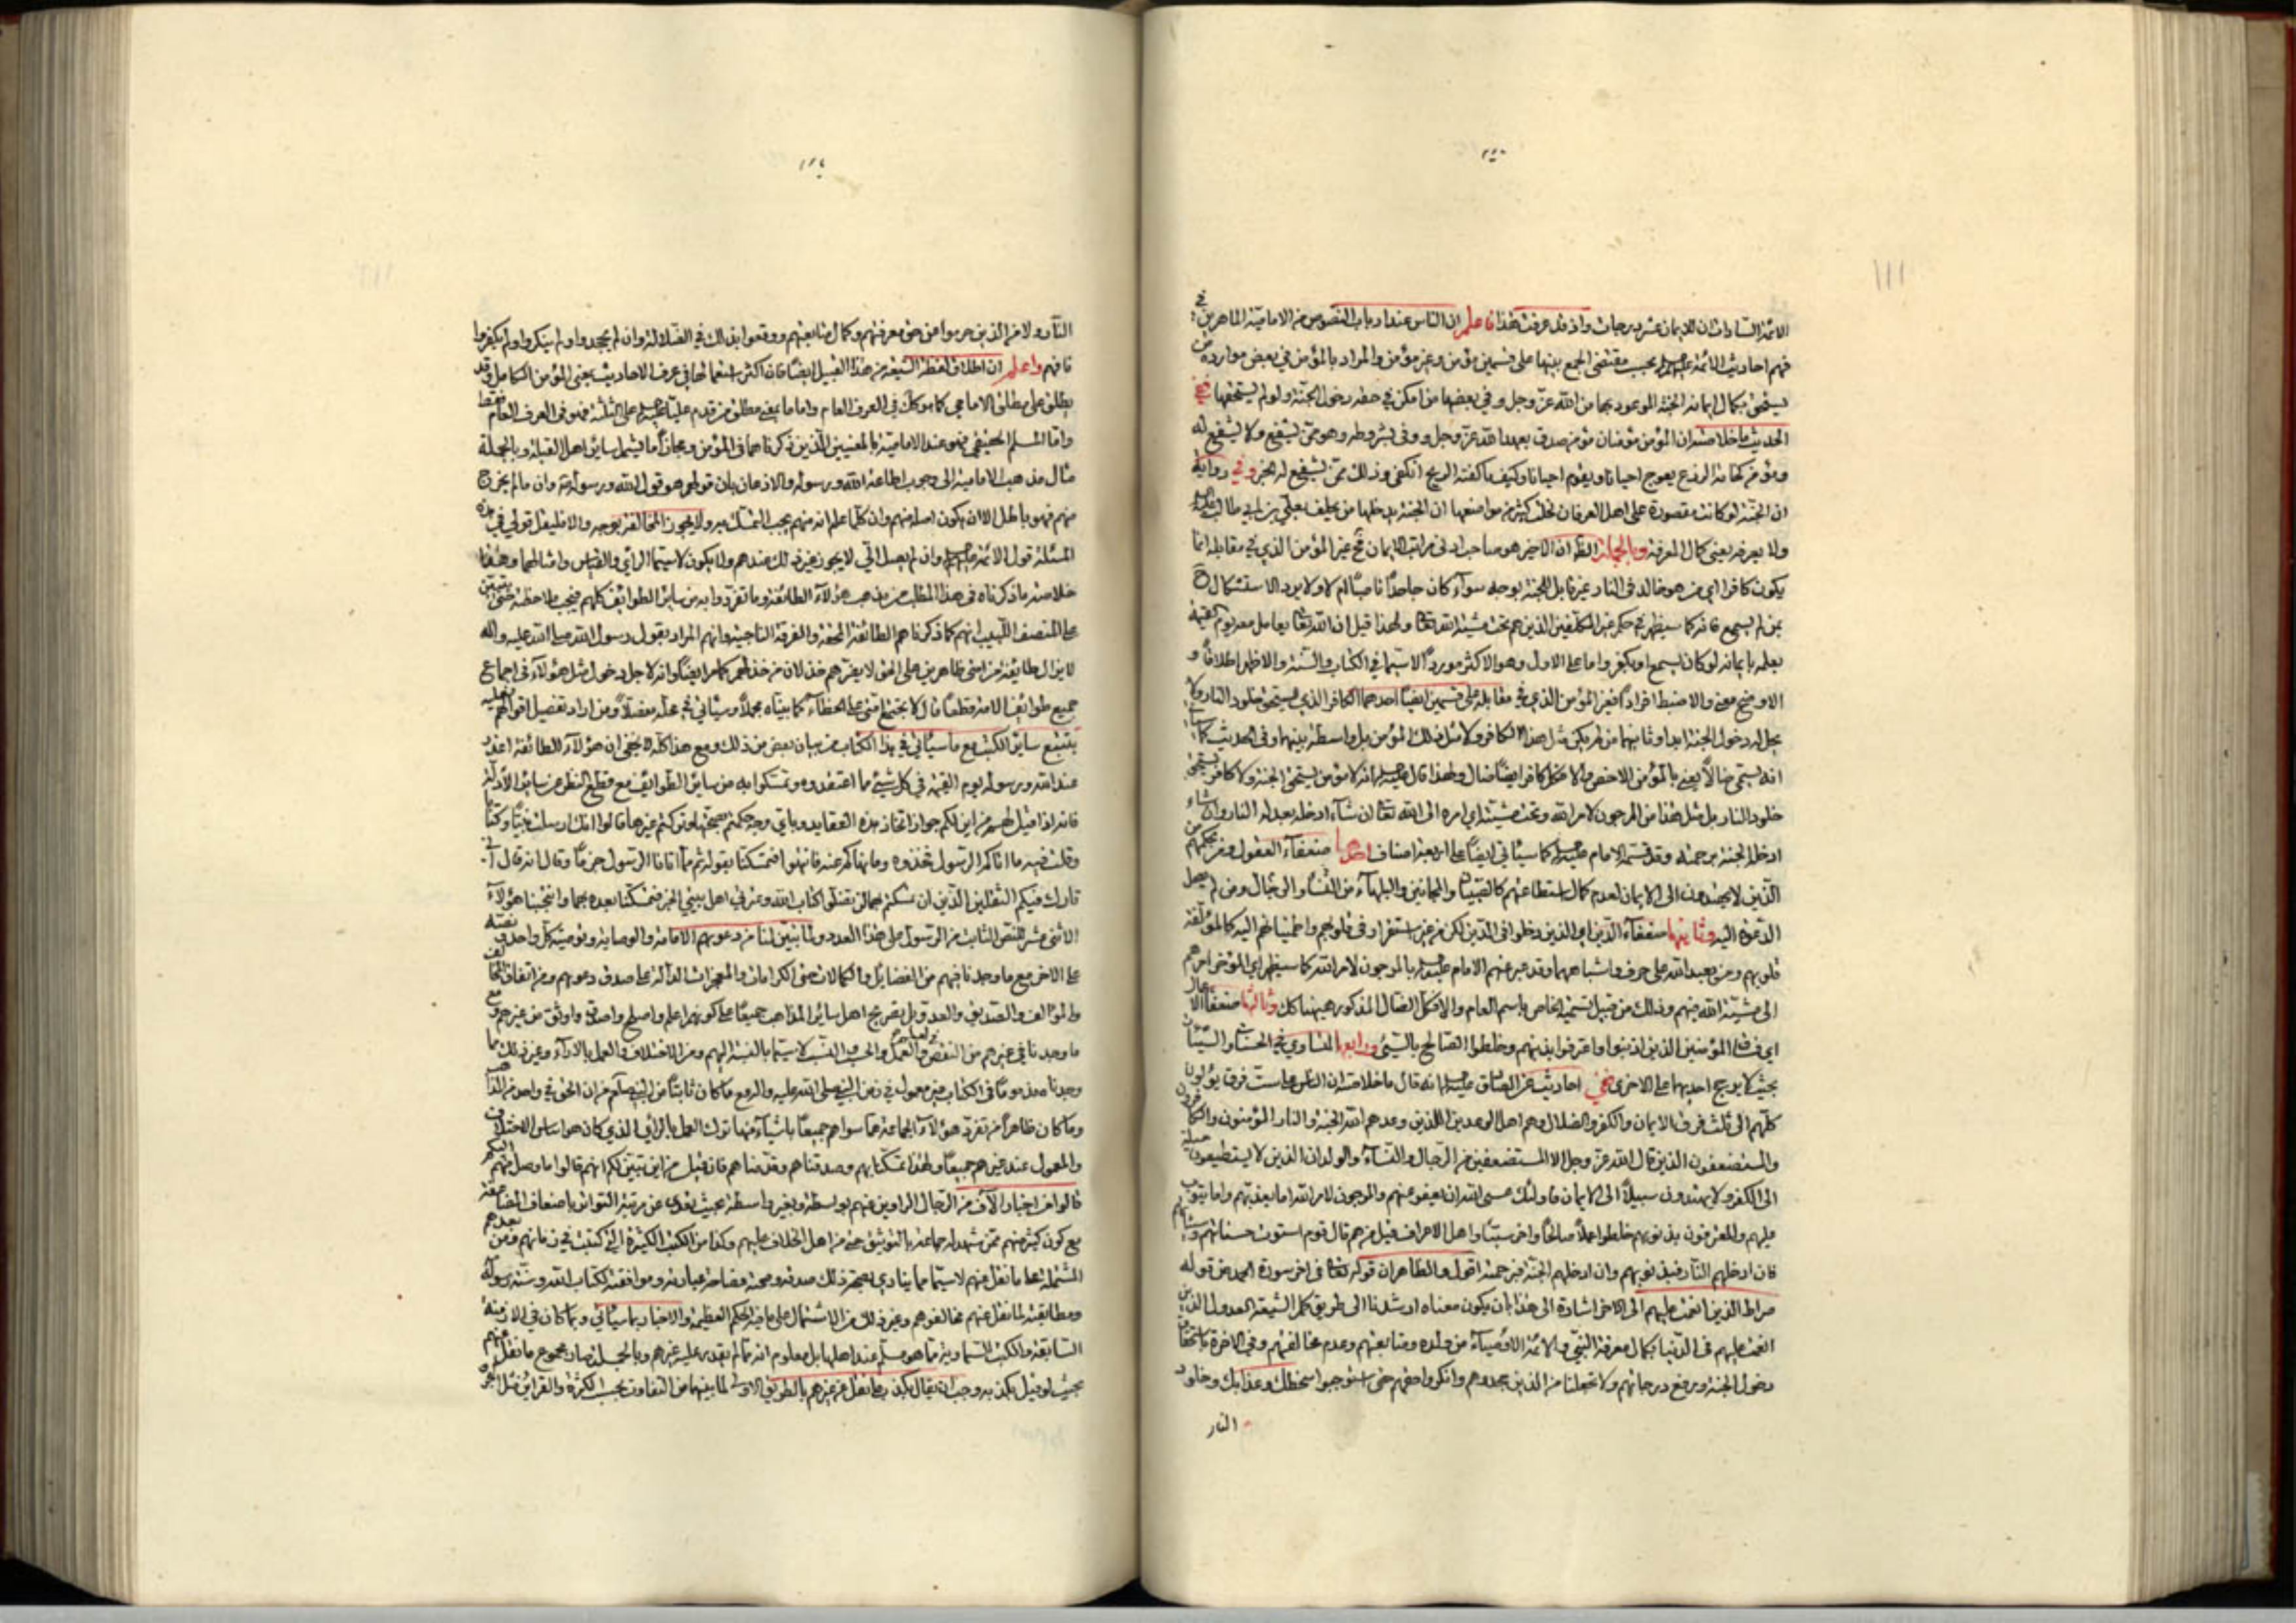 الائمة السادات ان للايمان عشر درجات واذ قد عرفت هذا فاعلم ان الناس عند ارباب النصوص من الامامية الماهرين في
فهم احاديث الائمة عليهم بحسب مقتضى الجمع بينها على قسمين مؤمن وغير مؤمن والمراد بالمؤمن في بعض موارده من
يستحق بكمال ايمانه الجنة الموعود بها من الله عز وجل وفي بعضها من امكن في حقه دخول الجنة ولو لم يستحقها ففي
الحديث ما خلاصته ان المؤمن مؤمنان مؤمن صدق بعهد الله عز وجل ووفى بشروطه وهو ممن يشفع ولا يشفع له
ومؤمن كخامة الزرع يعوج احيانا ويقوم احيانا وكيف ما كفته الريح انكفى وذلك ممن يشفع له الخبر وفي رواية
ان الجنة لو كانت مقصورة على اهل العرفان لخلت كثير من مواضعها ان الجنة يدخلها من يحلف بعلي بن ابي طالب
ولا يعرفه يعني كمال المعرفة وبالجملة الظ ان الاخير هو صاحب ادنى مراتب الايمان فح غير المؤمن الذي في مقابله انما
يكون كافرا اي من هو خالد في النار غير قابل للجنة بوجه سواء كان جاحدا ناصبا ام لا ولا يرد الاستشكال ح
بمن لم يسمع فانه كما سيظهر في حكم غير المكلفين الذين هم تحت مشية الله تعا ولهذا قيل ان الله تعا يعامل معه يوم القيمة
بعلمه بايمانه لو كان يسمع او بكفره واما على الاول وهو الاكثر موردا لا سيما في الكتاب والسنة والاظهر اطلاقا و
الاوضح معنى والاضبط افرادا فغير المؤمن الذي في مقابله على قسمين ايضا احدهما الكافر الذي يستحق خلود النار ولا
يجل له دخول الجنة ابدا وثانيهما من لم يكن مثل هذا الكافر ولا مثل ذلك المؤمن بل واسطة بينهما وفي الحديث كما سيأتي
انه يسمى ضالا يعني بالمؤمن الاخص والا فكل كافر ايضا ضال ولهذا قال عليه السلم انه لا مؤمن يستحق الجنة ولا كافر يستحق
خلود النار بل مثل هذا من المرجون لامر الله وتحت مشيته اي امره الى الله تعا ان شاء ادخله بعدله النار وان شاء
ادخله الجنة برحمته وقد قسمه الامام عليه السلم كما سيأتي ايضا على اربعة اصناف احدها ضعفاء العقول ومن بحكمهم من
الذين لا يهتدون الى الايمان لعدم كمال استطاعتهم كالصبيان والمجانين والبلهاء من النساء والرجال ومن لم يصل
الدعوة اليه وثانيها ضعفاء الدين اي الذين دخلوا في الدين لكن من غير استقرار في قلوبهم واطمينانهم اليه كالمؤلفة
قلوبهم ومن يعبد الله على حرف واشباههما وقد عبر عنهم الامام عليه السلم بالمرجون لامر الله كما سيظهر اي المؤخر امرهم
الى مشية الله فيهم وذلك من قبيل تسمية الخاص باسم العام والا فكل الضال المذكور هيهنا كك وثالثها ضعفاء الاعمال
اي فساق المؤمنين الذين اذنبوا واعترفوا بذنبهم وخلطوا الصالح بالسيئ ورابعها المتساوي في الحسنات والسيئات
بحيث لا يرجح احديهما على الاخرى ففي احاديث عن الصادق عليه السلم انه قال ما خلاصته ان الناس على ست فرق يؤلون
كلهم الى ثلث فرق الايمان والكفر والضلال وهم اهل الوعدين اللذين وعدهم الله الجنة والنار المؤمنون والكافرون
والمستضعفون الذين قال الله عز وجل الا المستضعفين من الرجال والنساء والولدان الذين لا يستطيعون حيلة
الى الكفر ولا يهتدون سبيلا الى الايمان فاولئك عسى الله ان يعفو عنهم والمرجون لامر الله اما يعذبهم واما يتوب
عليهم والمعترفون بذنوبهم خلطوا عملا صالحا واخر سيئا واهل الاعراف قيل من هم قال قوم استوت حسناتهم وسيئاتهم
فان ادخلهم النار فبذنوبهم وان ادخلهم الجنة فبرحمته اقول والظاهر ان قوله تعا في اخر سورة الحمد من قوله
صراط الذين انعمت عليهم الى الاخر اشارة الى هذا بان يكون معناه ارشدنا الى طريق كمل الشيعة العدول الذين
انعمت عليهم في الدنيا بكمال معرفة النبي والائمة الاوصياء من ولده ومتابعتهم وعدم مخالفتهم وفي الاخرة باستحقاق
دخول الجنة ورفع درجاتهم ولا تجعلنا من الذين جحدوهم وانكروا حقهم حتى استوجبوا سخطك وعذابك وخلود
النار
النار ولا من الذين حرموا من حق معرفتهم وكمال متابعتهم ووقعوا بذلك في الضلالة وان لم يجحدوا ولم ينكروا ولم يكفروا
فافهم واعلم ان اطلاق لفظ الشيعة من هذا القبيل ايضا فان اكثر استعمالها في عرف الاحاديث بمعنى المؤمن الكامل وقد
يطلق على مطلق الامامي كما هو كك في العرف العام واما ما بمعنى مطلق من قدم عليا عليه السلم على الثلثة فهو في العرف العام فقط
واما المسلم الحقيقي فهو عند الامامية بالمعنيين اللذين ذكرناهما في المؤمن ومجازا ما يشمل سائر اهل القبلة وبالجملة
مآل مذهب الامامية الى وجوب اطاعة الله ورسوله والاذعان بان قولهم هو قول الله ورسوله وان ما لم يخرج
منهم فهو باطل الا ان يكون اصله منهم وان كلما علم انه منهم يجب التمسك به ولا يجوز المخالفة بوجه والا فليقل قولي في هذه
المسئلة قول الائمة عليهم السلم وان لم يصل الي لا يجوز غير ذلك عندهم ولا يكون لا سيما الرأي والقياس وامثالهما وهذا
خلاصة ما ذكرناه في هذا المطلب من مذهب هؤلاء الطائفة وما تفردوا به من سائر الطوايف كلهم فيجب ملاحظته حتى يتبين
على المنصف اللبيب انهم كما ذكرنا هم الطائفة المحقة والفرقة الناجية وانهم المراد بقول رسول الله صلى الله عليه واله
لا يزال طائفة من امتي ظاهرين على الحق لا يضرهم خذلان من خذلهم كما مر ايضا وانه لاجل دخول مثل هؤلاء في اجماع
جميع طوائف الامة قطعا قال لا يجتمع امتي على الخطاء كما بيناه مجملا وسيأتي في محله مفصلا ومن اراد تفصيل اقوالهم فعليه
بتتبع سائر الكتب مع ما سيأتي في هذا الكتاب من بيان بعض من ذلك ومع هذا كله لا يخفى ان هؤلاء الطائفة اعذر
عند الله ورسوله يوم القيمة في كل شيئ مما اعتقدوه وتمسكوا به من سائر الطوايف مع قطع النظر عن سائر الادلة
فانه اذا قيل لهم من اين لكم جواز اتخاذ هذه العقايد وباي وجه حكمتم بصحتها وتركتم غيرها قالوا انك ارسلت نبيا وكتابا
وقلت فيه ما اتاكم الرسول فخذوه وما نهاكم عنه فانتهوا فتمسكنا بقوله ثم ما اتانا الرسول جزما وقال انه قال اني
تارك فيكم الثقلين الذين ان تمسكتم بهما لن تضلوا كتاب الله وعترتي اهل بيتي الخبر فتمسكنا بعده بهما وانتجبنا هؤلاء
الاثنى عشر للنص الثابت من الرسول على هذا العدد ولما تبين لنا من دعويهم الامامة والوصاية وتوصية كل واحد وصيته
على الاخر مع ما وجدنا فيهم من الفضائل والكمالات حتى الكرامات والمعجزات الدالة على صدق دعويهم ومن اتفاق المخالف
والمؤالف والصديق والعدو بل بتصريح اهل سائر المذاهب جميعا على كونهم اعلم واصلح واصدق واوثق من غيرهم ومع
ما وجدنا في غيرهم من النقص في العلم والعمل والحسب والنسب لا سيما بالنسبة اليهم ومن الاختلاف والعمل بالاراء وغير ذلك مما
وجدناه مذموما في الكتاب غير معمول في زمن النبي صلى الله عليه واله مع ما كان ثابتا من النبي صلعم من ان الحق في واحد من المذاهب
وما كان ظاهرا من تفرد هؤلاء الجماعة عما سواهم جميعا باشياء منها ترك العمل بالرأي الذي كان هو اساس الاختلاف
والمعمول عند غيرهم جميعا ولهذا تمسكنا بهم وصدقناهم وقدمناهم فان قيل من اين تبين لكم انهم قالوا ما وصل منهم اليكم
قالوا من اخبار الآف من الرجال الراوين عنهم بواسطة وبغير واسطة بحيث تعدى عن مرتبة التواتر باضعاف المضاعفة
مع كون كثير منهم ممن شهد له جماعة بالتوثيق حتى من اهل الخلاف عليهم وكذا من الكتب الكثيرة التي كتبت في زمانهم ومن بعدهم
المشتملة على ما نقل عنهم لا سيما مما ينادي بصحة ذلك صدقه وصحة مضامنه عبارته وموافقته لكتاب الله وسنة رسوله
ومطابقته لما نقل عنهم مخالفوهم وغير ذلك من الاشتمال على ما فيه الحكم العظيمة والاخبار بما سيأتي وبما كان في الازمنة
السابقة والكتب السماوية مما هو مسلم عند اهلها بل معلوم انه مما لم يقدر عليه غيرهم وبالجملة صار مجموع ما نقل عنهم
بحيث لو قيل بكذبه وجب ان يقال بكذب ما نقل عن غيرهم بالطريق الاولى لما بينهما من التفاوت بحسب الكثرة والقرائن مثل اخبار